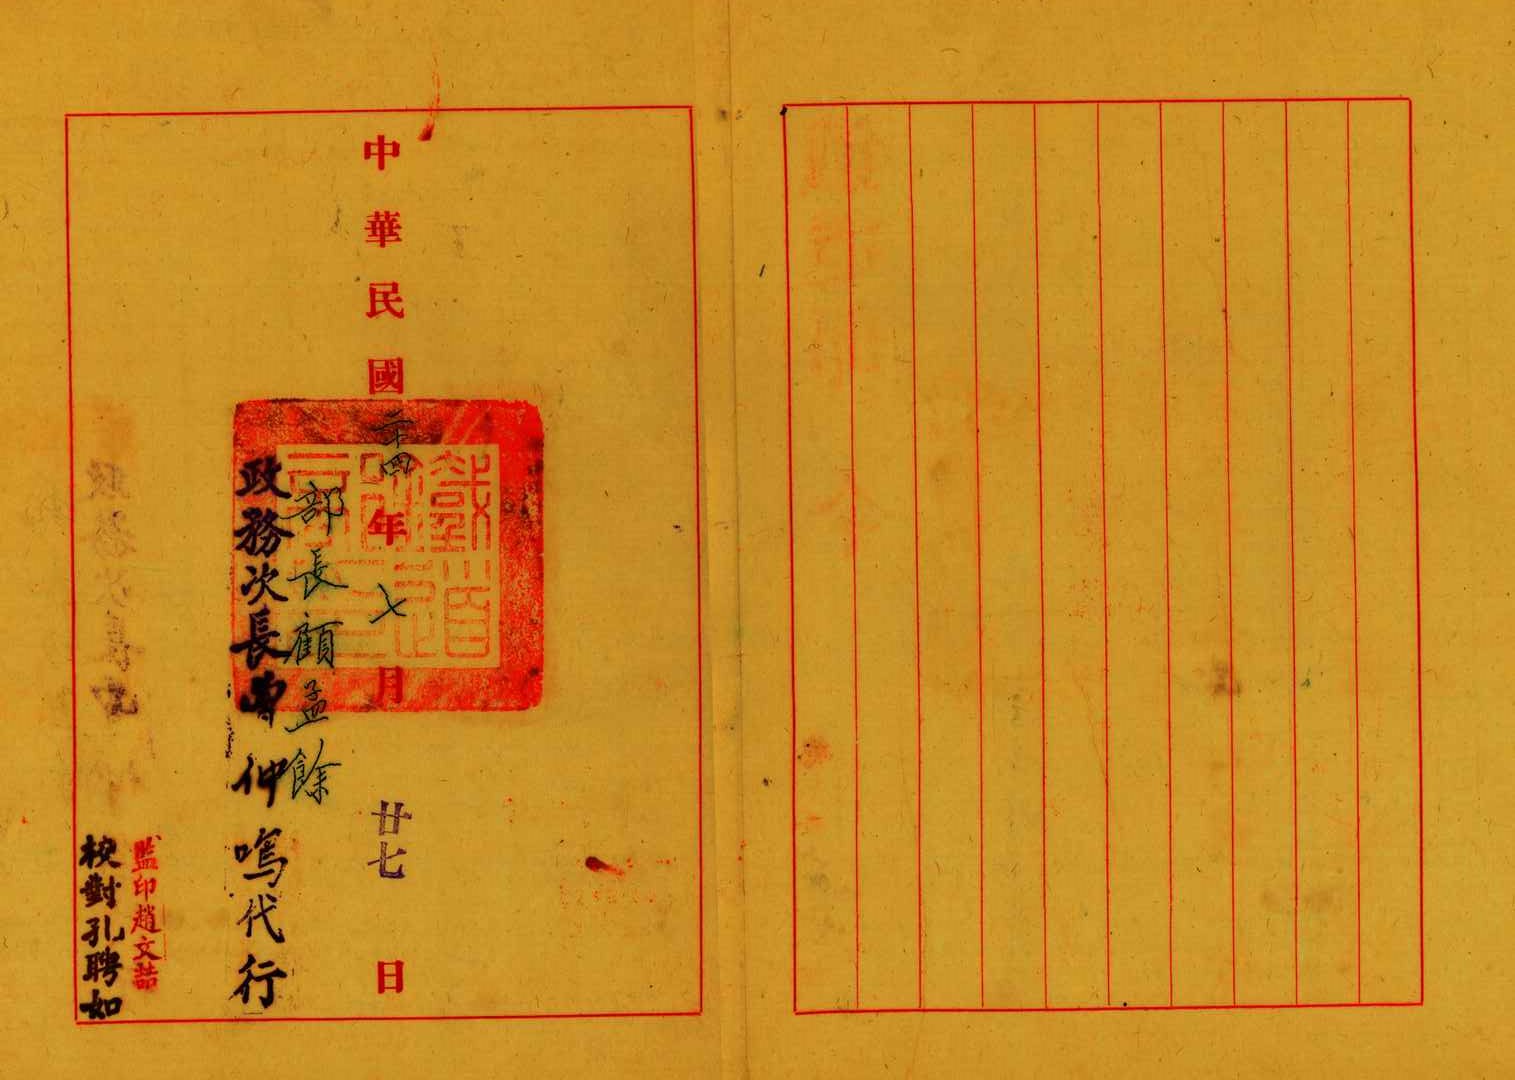 中華民國二十四年七月廿七日
部長顧孟餘
政務次長曾仲鳴代行
監印趙文喆
校對孔聘如
鐵道部之印